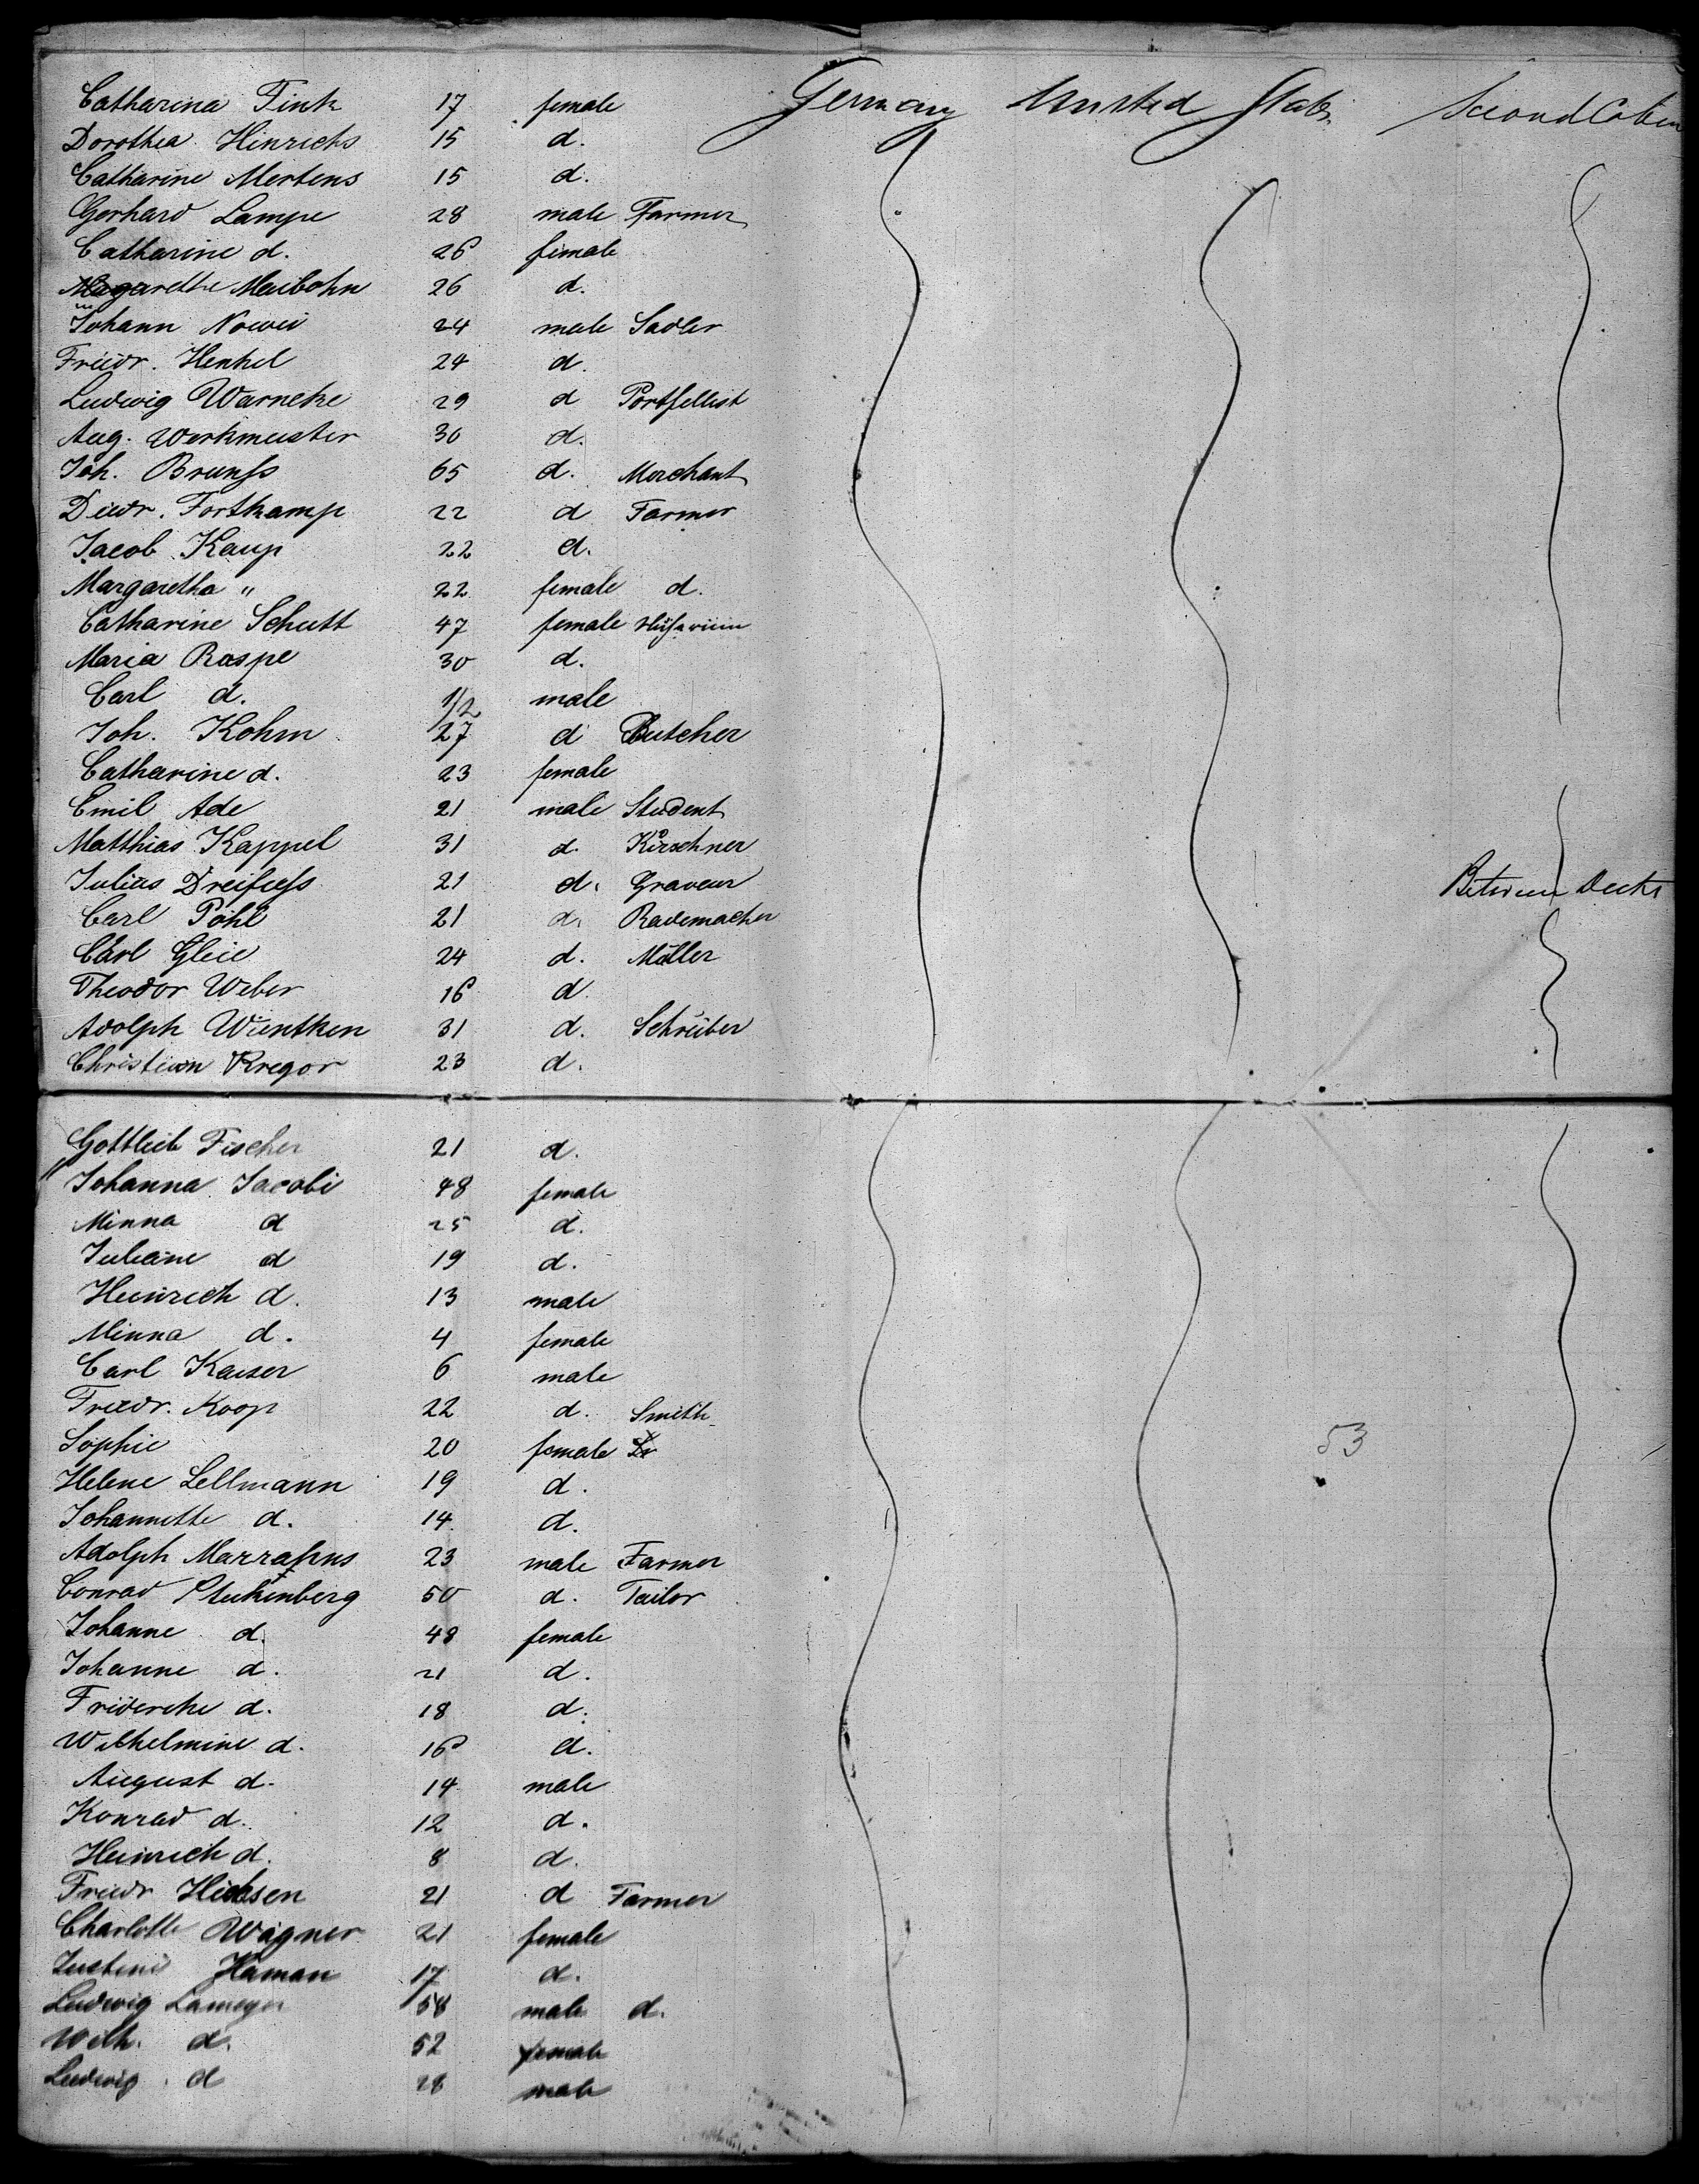 Catharina Fink 17 female Germany United States Second Cabin
Dorothea Hinrichs 15 d.
Catharine Mertens 15 d.
Gerhard Lampe 28 male Farmer
Catharine d. 26 female
Magarethe Meibohn 26 d.
Johann 24 male Sadler
Friedr. Henkel 24 d.
Ludwig Warneke 29 d Portfellist
Aug. Werkmeister 30 d.
Joh. Brunss 65 d. Merchant
Diedr. Forthkamp 22 d Farmer
Jacob Kaup 22 d.
Margaretha " 22 female d.
Catharine Schutt 47 female
Maria Raspe 30 d.
Carl d. 1/2 male
Joh. Kohm 27 d Butcher
Catharine d. 23 female
Emil Ade 21 male Student
Matthias Kappel 31 d. Kürschner
Julius Dreifuss 21 d. Graveur Between Decks
Carl Pöhl 21 d. Rademacher
Carl Gleie 24 d. Müller
Theodor Weber 16 d.
Adolph Wientken 31 d. Schreiber
Christian Kregor 23 d.
Gottlieb Fischer 21 d.
" Johanna Jacobi 48 female
Minna d 25 d.
Juliane d 19 d.
Heinrich d. 13 male
Minna d. 4 female
Carl Kaiser 6 male
Friedr. Koop 22 d. Smith
Sophie 20 female 53
Helene Lellmann 19 d.
Johannette d. 14 d.
Adolph 23 male Farmer
Conrad Stukenberg 50 d. Tailor
Johanne d. 48 female
Johanne d. 21 d.
Friderike d. 18 d.
Wilhelmine d. 16 d.
August d. 14 male
Konrad d. 12 d.
Heinrich d. 8 d.
Friedr 21 d Farmer
Charlotte Wagner 21 female
Justine Haman 17 d.
Ludwig Lameyer 58 male d.
Wilh. d. 52 female
Ludwig d 28 male